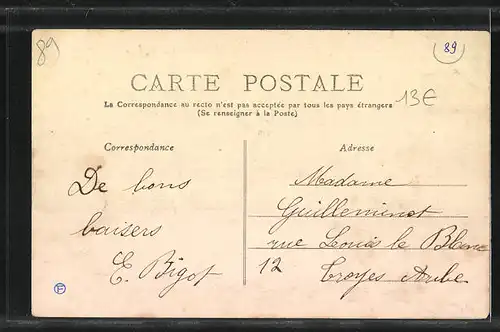 89
89
CARTE POSTALE
13€
La Correspondance au recto n'est pas acceptée par tous les pays étrangers
(Se renseigner à la Poste)
Correspondance
Adresse
De bons
baisers
E. Bigot
Madame
Guilleminot
rue Louis le Blanc
12 Troyes Aube
F